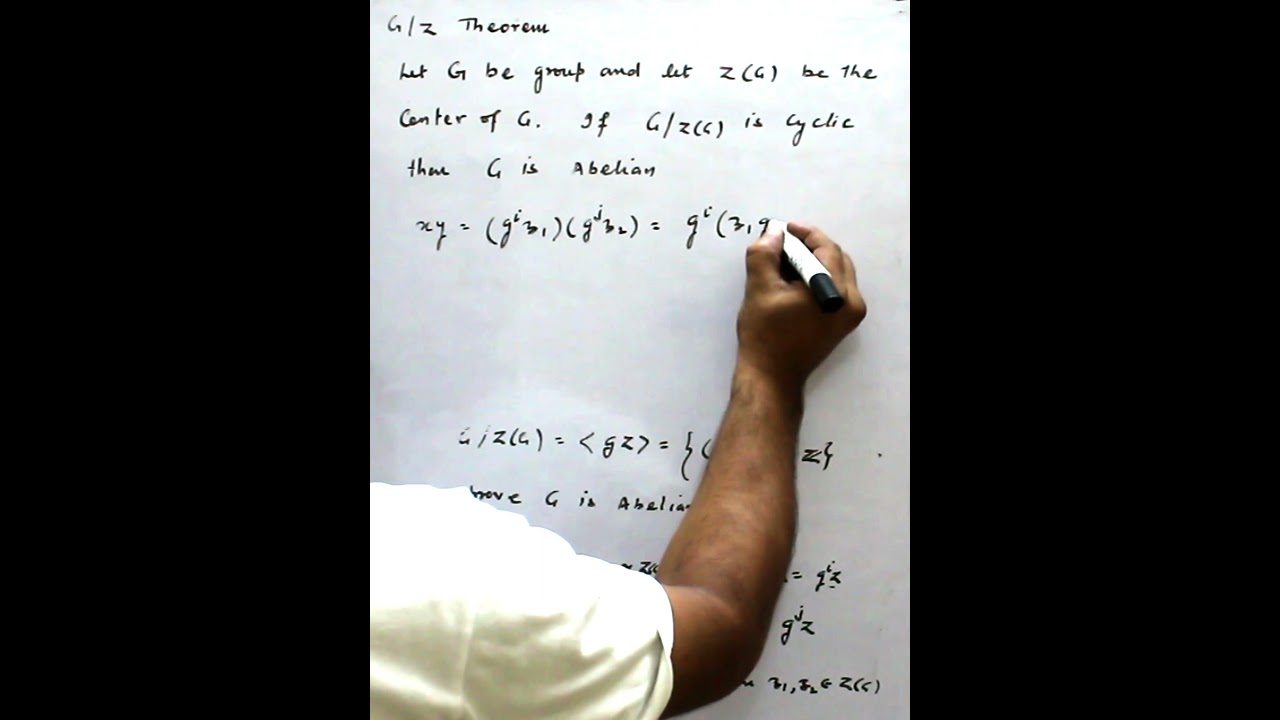 G/Z Theorem
Let G be group and let Z(G) be the
Center of G. If G/Z(G) is cyclic
then G is Abelian
xy = (gⁱz₁)(gʲz₂) = gⁱ(z₁g
G/Z(G) = <gZ> = {( Z}
G is Abelian
= gⁱz
gʲz
z₁, z₂ ∈ Z(G)